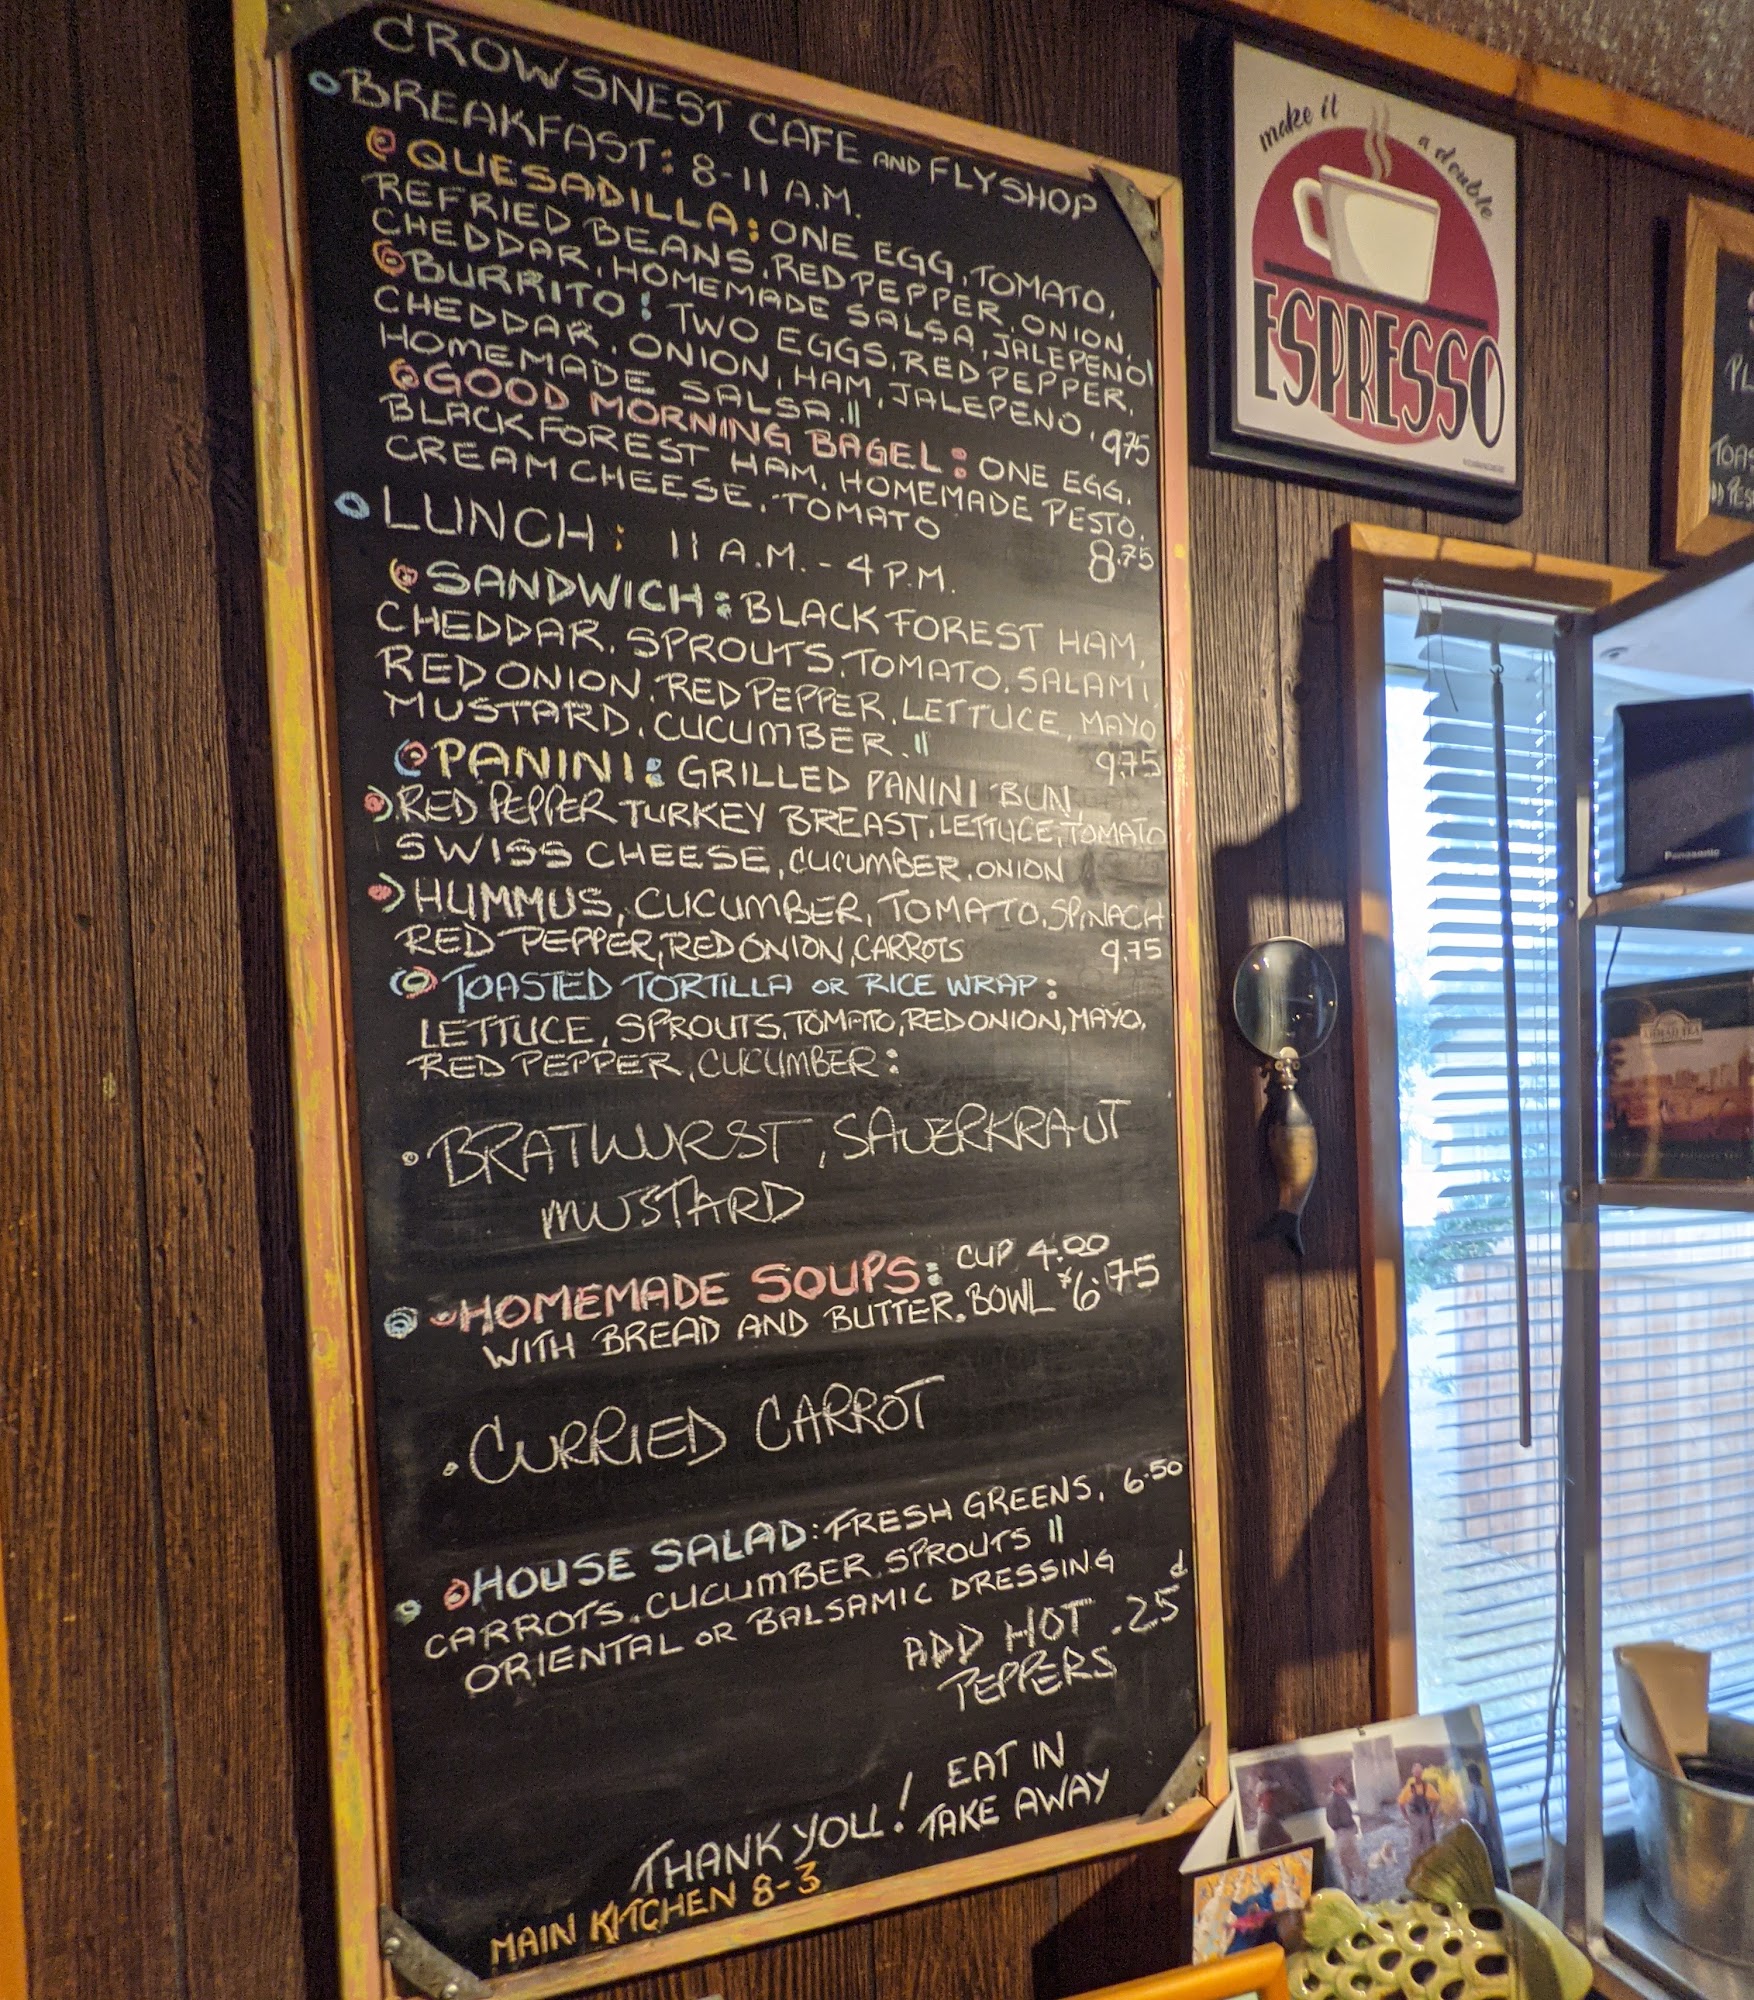 CROWSNEST CAFE AND FLYSHOP
BREAKFAST: 8-11 A.M.
QUESADILLA: ONE EGG, TOMATO,
REFRIED BEANS, RED PEPPER, ONION,
CHEDDAR, HOMEMADE SALSA, JALEPENO
BURRITO: TWO EGGS, RED PEPPER,
CHEDDAR, ONION, HAM, JALEPENO,
HOMEMADE SALSA. 9.75
GOOD MORNING BAGEL: ONE EGG,
BLACK FOREST HAM, HOMEMADE PESTO,
CREAM CHEESE, TOMATO 8.75
LUNCH: 11 A.M. - 4 P.M.
SANDWICH: BLACK FOREST HAM,
CHEDDAR, SPROUTS, TOMATO, SALAMI,
RED ONION, RED PEPPER, LETTUCE, MAYO
MUSTARD, CUCUMBER. 9.75
PANINI: GRILLED PANINI BUN
RED PEPPER TURKEY BREAST, LETTUCE, TOMATO
SWISS CHEESE, CUCUMBER, ONION
HUMMUS, CUCUMBER, TOMATO, SPINACH
RED PEPPER, RED ONION, CARROTS 9.75
TOASTED TORTILLA OR RICE WRAP:
LETTUCE, SPROUTS, TOMATO, RED ONION, MAYO,
RED PEPPER, CUCUMBER:
BRATWURST, SAUERKRAUT
MUSTARD
HOMEMADE SOUPS: CUP 4.00
WITH BREAD AND BUTTER. BOWL 6.75
CURRIED CARROT
HOUSE SALAD: FRESH GREENS, 6.50
CARROTS, CUCUMBER, SPROUTS
ORIENTAL OR BALSAMIC DRESSING
ADD HOT .25¢
PEPPERS
EAT IN
THANK YOU! TAKE AWAY
MAIN KITCHEN 8-3
make it a double
ESPRESSO
Panasonic
AHMAD TEA